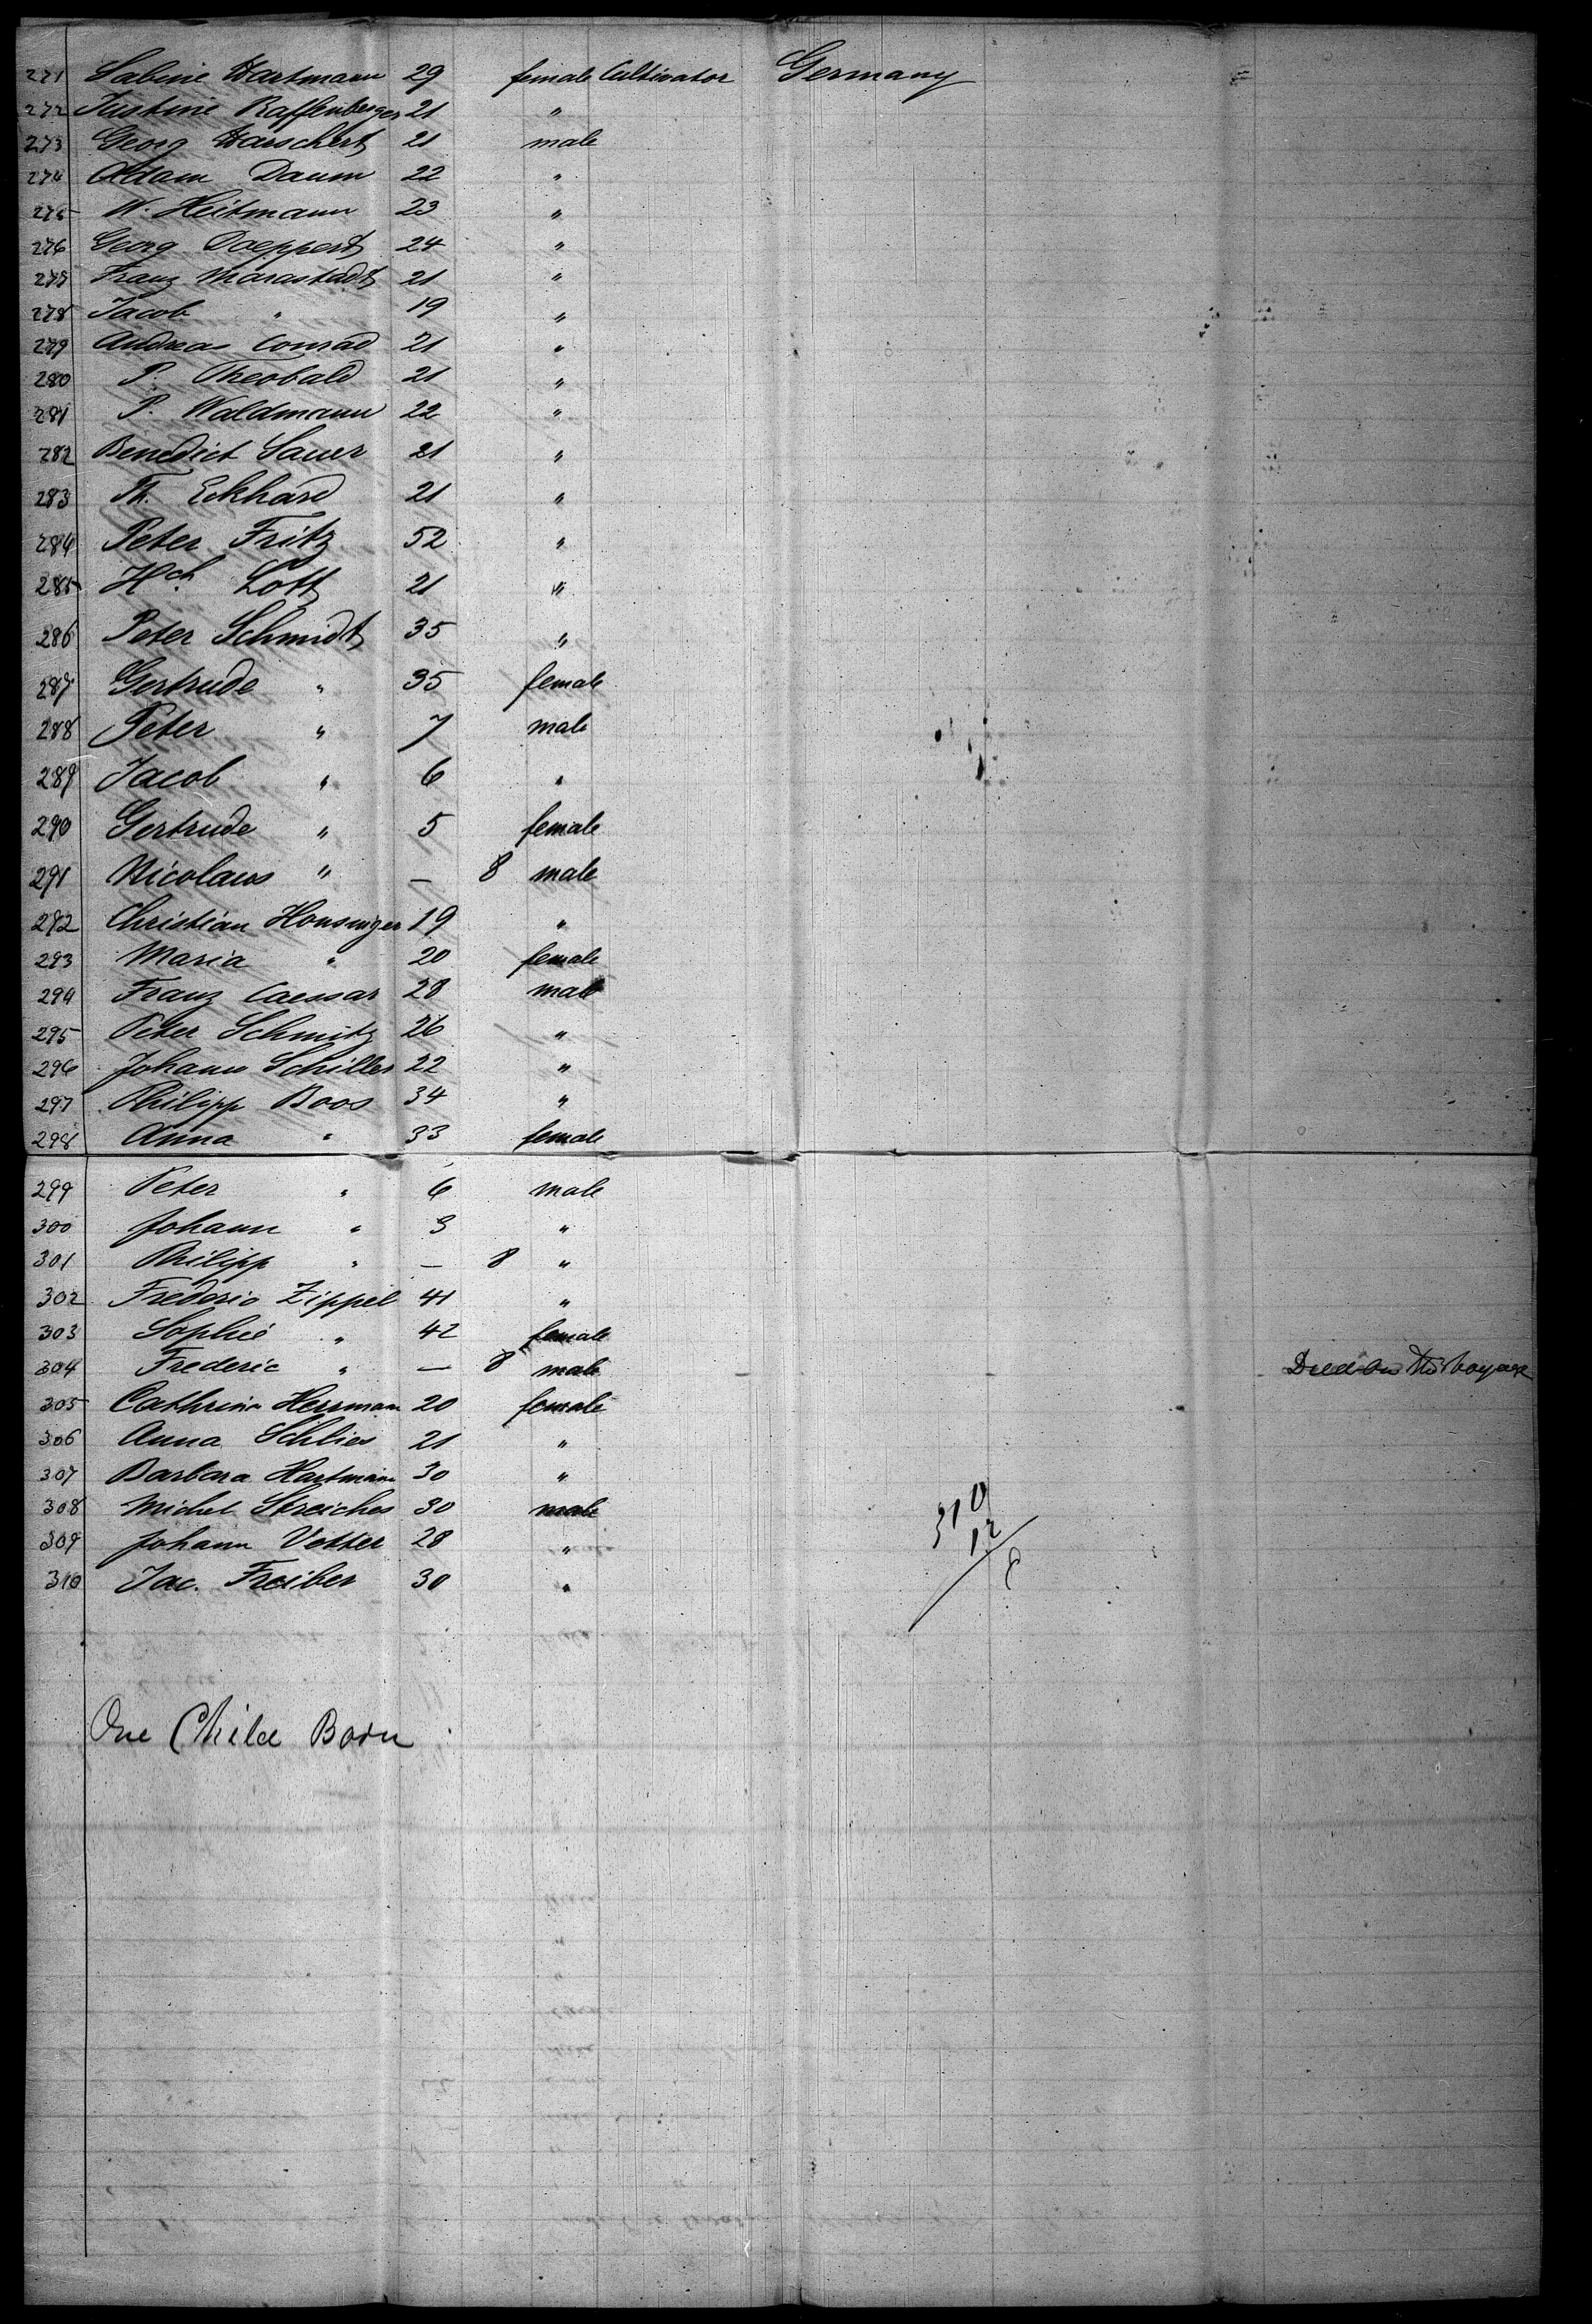 271 Sabine Hartmann 29 female Cultivator Germany
272 Justine Raffenberger 21 "
273 Georg Harschert 21 male
274 Adam Daum 22 "
275 W. Heitmann 23 "
276 Georg Doeppert 24 "
277 Franz Marastadt 21 "
278 Jacob " 19 "
279 Andreas Conrad 21 "
280 P. Theobald 21 "
281 P. Waldmann 22 "
282 Benedict Sauer 21 "
283 Th. Eckhard 21 "
284 Peter Fritz 52 "
285 Hch. Lott 21 "
286 Peter Schmidt 35 "
287 Gertrude " 35 female
288 Peter " 7 male
289 Jacob " 6 "
290 Gertrude " 5 female
291 Nicolaus " — 8 male
292 Christian Honsinger 19 "
293 Maria " 20 female
294 Franz Caessar 28 male
295 Peter Schmitz 26 "
296 Johann Schiller 22 "
297 Philipp Boos 34 "
298 Anna " 33 female
299 Peter " 6 male
300 Johann " 3 "
301 Philipp " — 8 "
302 Frederic Zippel 41 "
303 Sophie " 42 female
304 Frederic " — 8 male Died on the voyage
305 Cathrina Herrmann 20 female
306 Anna Schlies 21 "
307 Barbara Hartmann 30 "
308 Michel Streicher 30 male
309 Johann Vetter 28 "
310 Jac. Freiber 30 "
310
12
One Child Born